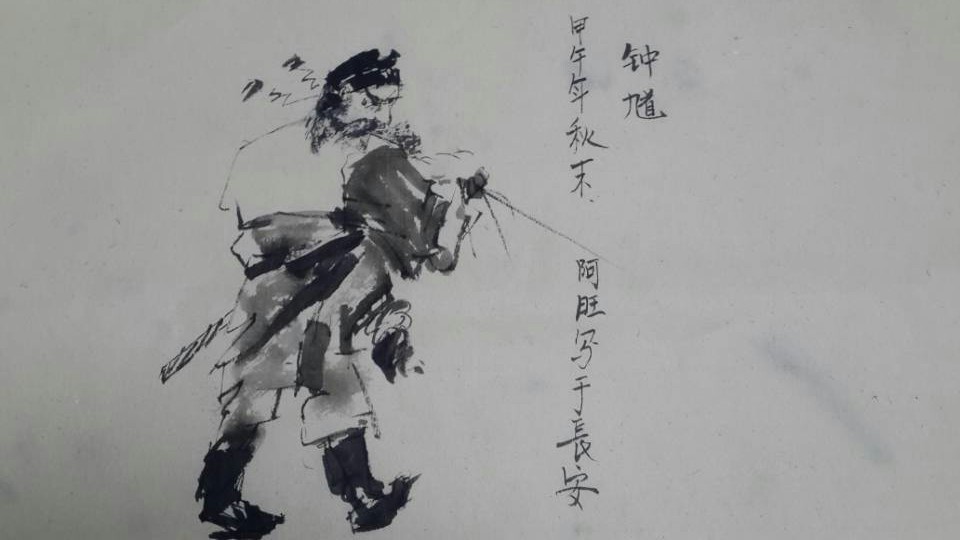 钟馗
甲午年秋末
阿旺写于長安